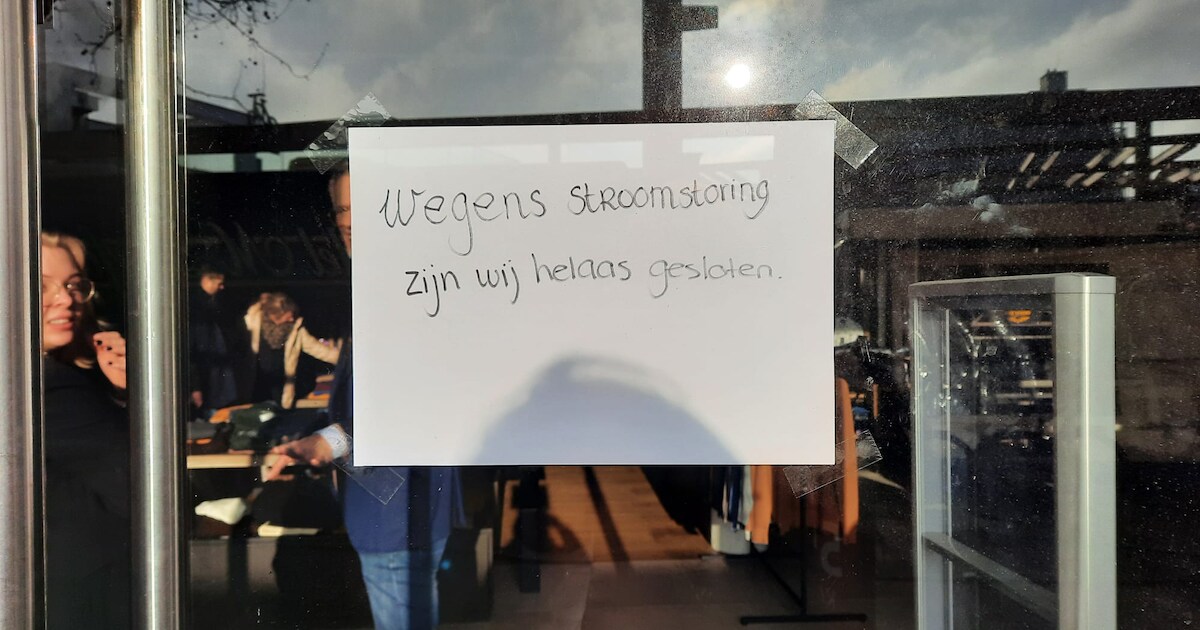 Wegens stroomstoring
zijn wij helaas gesloten.